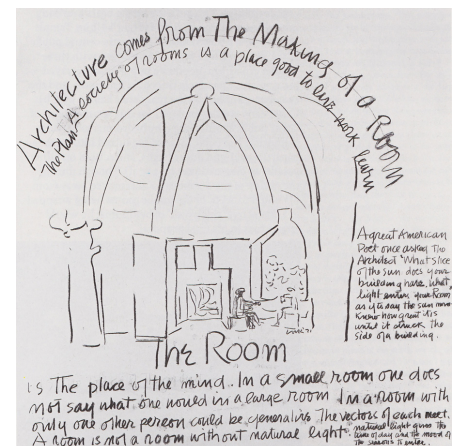 Architecture comes from The Making of a Room
The Plan A society of rooms is a place good to live work learn
A great American
Poet once asked The
Architect 'What slice
of the sun does your
building have, what
light enters your Room
as if to say the sun never
knew how great it is
until it struck the
side of a building.
The Room
is The place of the mind. In a small room one does
not say what one would in a large room In a room with
only one other person could be generative The vectors of each meet.
A room is not a room without natural light
natural light gives the
time of day and the mood of
the seasons to enter.